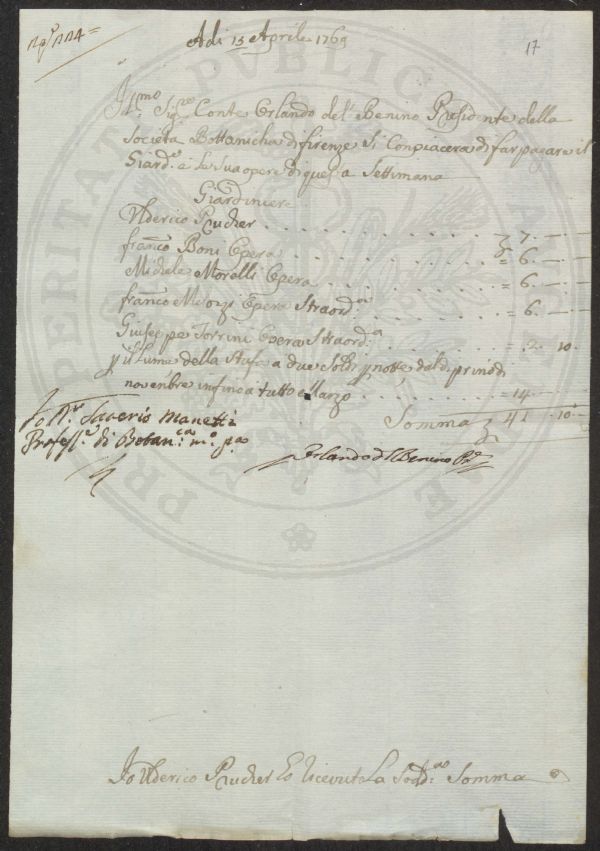 Adi 13 Aprile 1769
17
Ill.mo Sig.re Conte Orlando del Benino Presidente della
Società Bottanicha di firenze Si Conpiacera di far pagare il
Giard.e e le Sua opere di quest a Settimana
Giardiniere
Ulderico Prucher = 7. —
franc.o Boni Opera = 6. —
Michele Morelli Opera = 6. —
franc.o Melozzi Opera Straord.a = 6 —
Giuseppe Torrini Opera Straord.a = 2. 10.
p il Lume della Stufa a due Soldi p notte, dal dì primo di
novenbre infino a tutto Marzo = 14. —
Somma 41. 10.
Io D.r Saverio Manetti
Profess.e di Botan.ca m.o p.a
Orlando del Benino P.te
Io Ulderico Prucher Ho Ricevuto La Sodd.a Somma